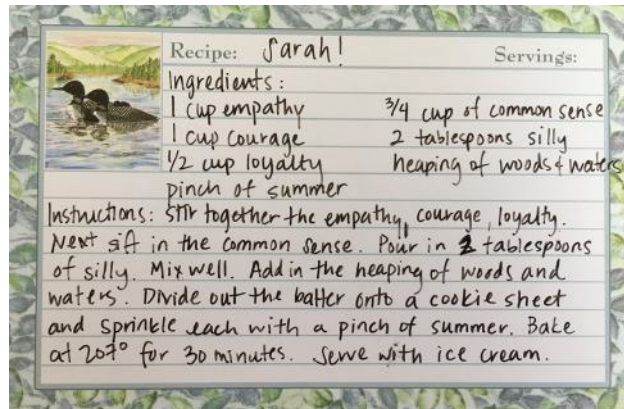 Recipe: Sarah! Servings:
Ingredients:
1 cup empathy 3/4 cup of common sense
1 cup courage 2 tablespoons silly
1/2 cup loyalty heaping of woods & waters
pinch of summer
Instructions: Stir together the empathy, courage, loyalty.
Next sift in the common sense. Pour in 2 tablespoons
of silly. Mix well. Add in the heaping of woods and
waters. Divide out the batter onto a cookie sheet
and sprinkle each with a pinch of summer. Bake
at 207° for 30 minutes. Serve with ice cream.